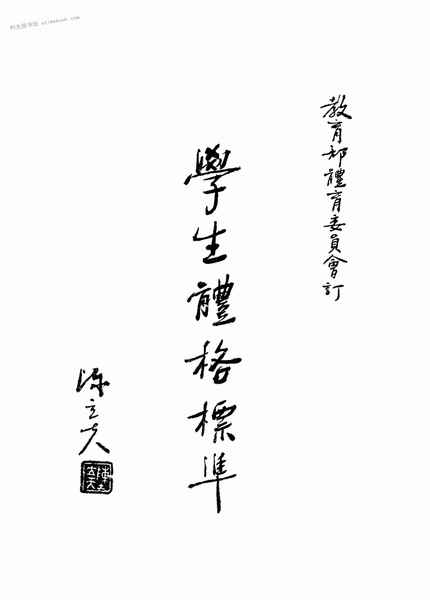 教育部體育委員會訂
學生體格標準
陳立夫